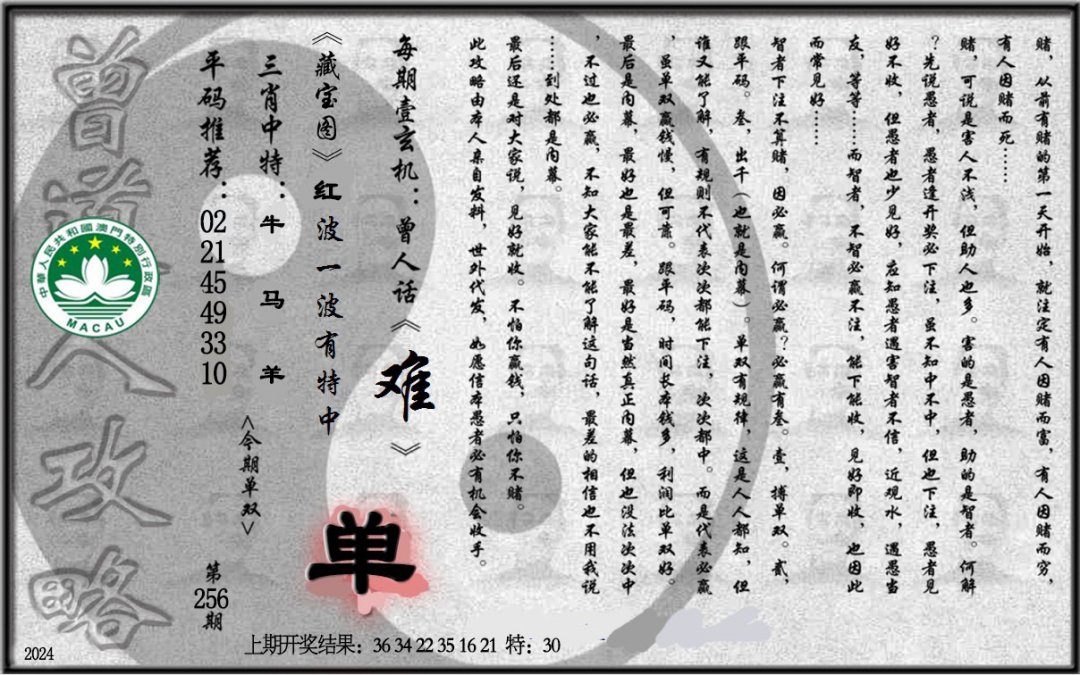 赌，从前有赌的第一天开始，就注定有人因赌而富，有人因赌而穷，
有人因赌而死……
赌，可说是害人不浅，但助人也多。害的是愚者，助的是智者。何解
？先说愚者，愚者逢开奖必下注，虽不知中不中，但也下注，愚者见
好不收，但愚者也少见好，应知愚者遇害智者不信，近观水，遇愚当
友，等等……而智者，不智必赢不注，能下能收，见好即收，也因此
而常见好……
智者下注不算赌，因必赢。何谓必赢？必赢有叁。壹，搏单双。贰，
跟平码。叁，出千（也就是内幕）。单双有规律，这是人人都知，但
谁又能了解，有规则不代表次次都能下注，次次都中。而是代表必赢
，虽单双赢钱慢，但可靠。跟平码，时间长本钱多，利润比单双好。
最后是内幕，最好也是最差，最好是当然真正内幕，但也没法次次中
，不过也必赢，不知大家能不能了解这句话，最差的相信也不用我说
……到处都是内幕。
最后还是对大家说，见好就收。不怕你赢钱，只怕你不赌。
此攻略由本人亲自发料，世外代发，如愿信本愚者必有机会收手。
每期壹玄机：曾人话《难》
《藏宝图》红波一波有特中
单
三肖中特：牛 马 羊
<今期单双>
平码推荐：02 21 45 49 33 10
第256期
曾道人攻略
中華人民共和國澳門特別行政區
MACAU
上期开奖结果：36 34 22 35 16 21 特：30
2024